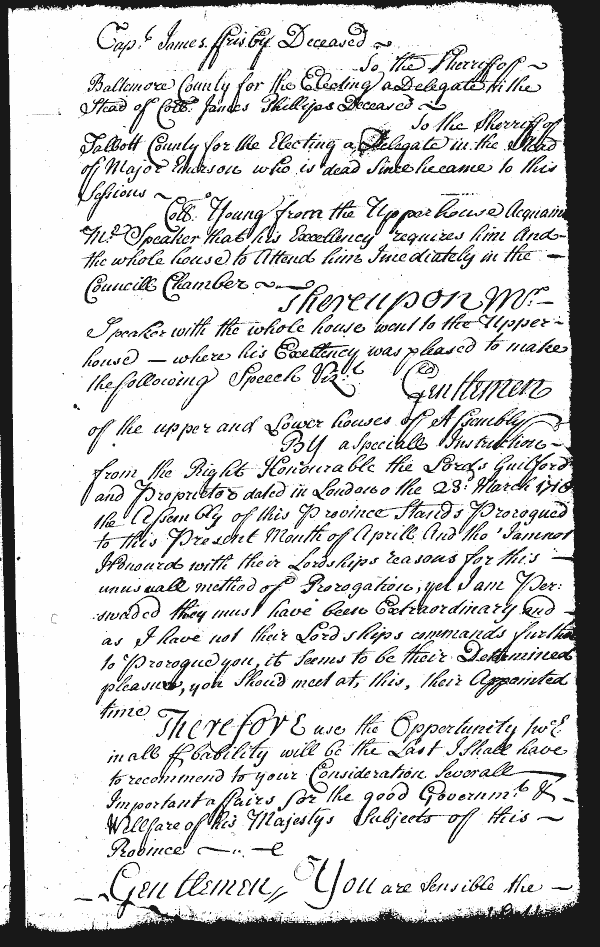 Capt. James ffrisby Deceased ~
To the Sherriff of ~
Baltemore County for the Electing a Delegate in the
Stead of Coll. James Phillips Deceased ~
To the Sherriff of
Talbott County for the Electing a Delegate in the Stead
of Major Emerson who is dead Since he came to this
Sessions ~
Coll. Young from the Upper house Acquaints
Mr. Speaker that his Excellency requires him And
the whole house to Attend him Imediately in the —
Councill Chamber ~ —
Thereupon Mr. —
Speaker with the whole house went to the Upper -
house — where his Excellency was pleased to make
the following Speech Vizt.
Gentlemen
of the upper and Lower houses of Assembly
By a Speciall Instruction —
from the Right Honourable the Lords Guilford
and Proprietor dated in London the 28d. March 1720
the Assembly of this Province Stands Prorogued
to this Present Month of Aprill And tho' I am not
Honourd with their Lordships reasons for this —
unusuall method of Prorogation; yet I am Per:
swaded they must have been Extraordinary and —
as I have not their Lordships commands further
to Prorogue you, it Seems to be their Determined
pleasure, you Should meet at, this, their Appointed
time
Therefore use the Opportunity wch.
in all Probability will be the Last I Shall have
to recommend to your Consideration Severall
Important affairs for the good Governmt. & -
Wellfare of his Majestys Subjects of this ~
Province —
Gentlemen, You are Sensible the —